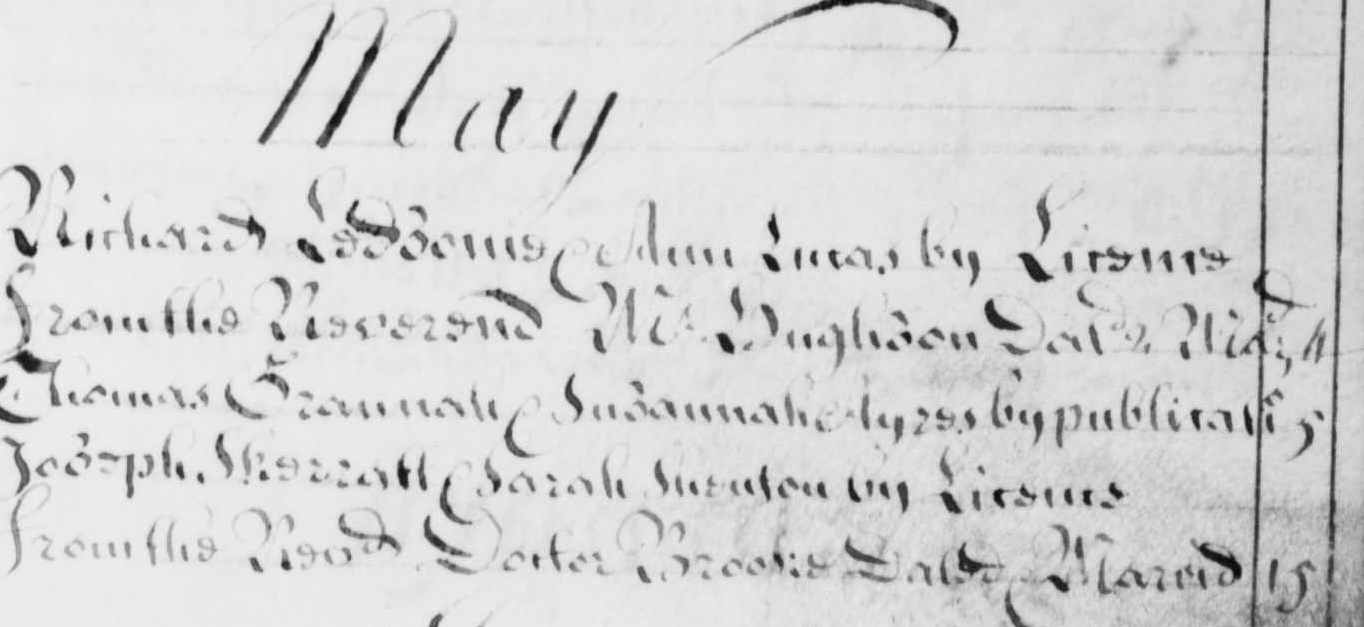 May
Richard Ledsome & Ann Lucas by Licence
from the Reverend Mr Hughson Dat'd May 4
Thomas & Susannah Ayres by publicati 5
Joseph Skerratt & Sarah by Licence
from the Revd Doctor Brooke Dated & Maried 15